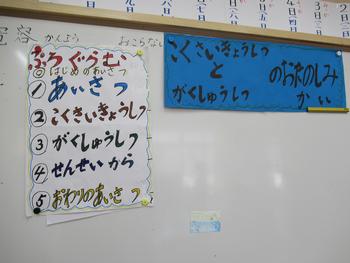 寛容 かんよう おこらない
ぷろぐらむ
◎はじめのあいさつ
① あいさつ
② こくさいきょうしつ
③ がくしゅうしつ
④ せんせいから
⑤ おわりのあいさつ
こくさいきょうしつ
と
がくしゅうしつ
のおたのしみ
かい